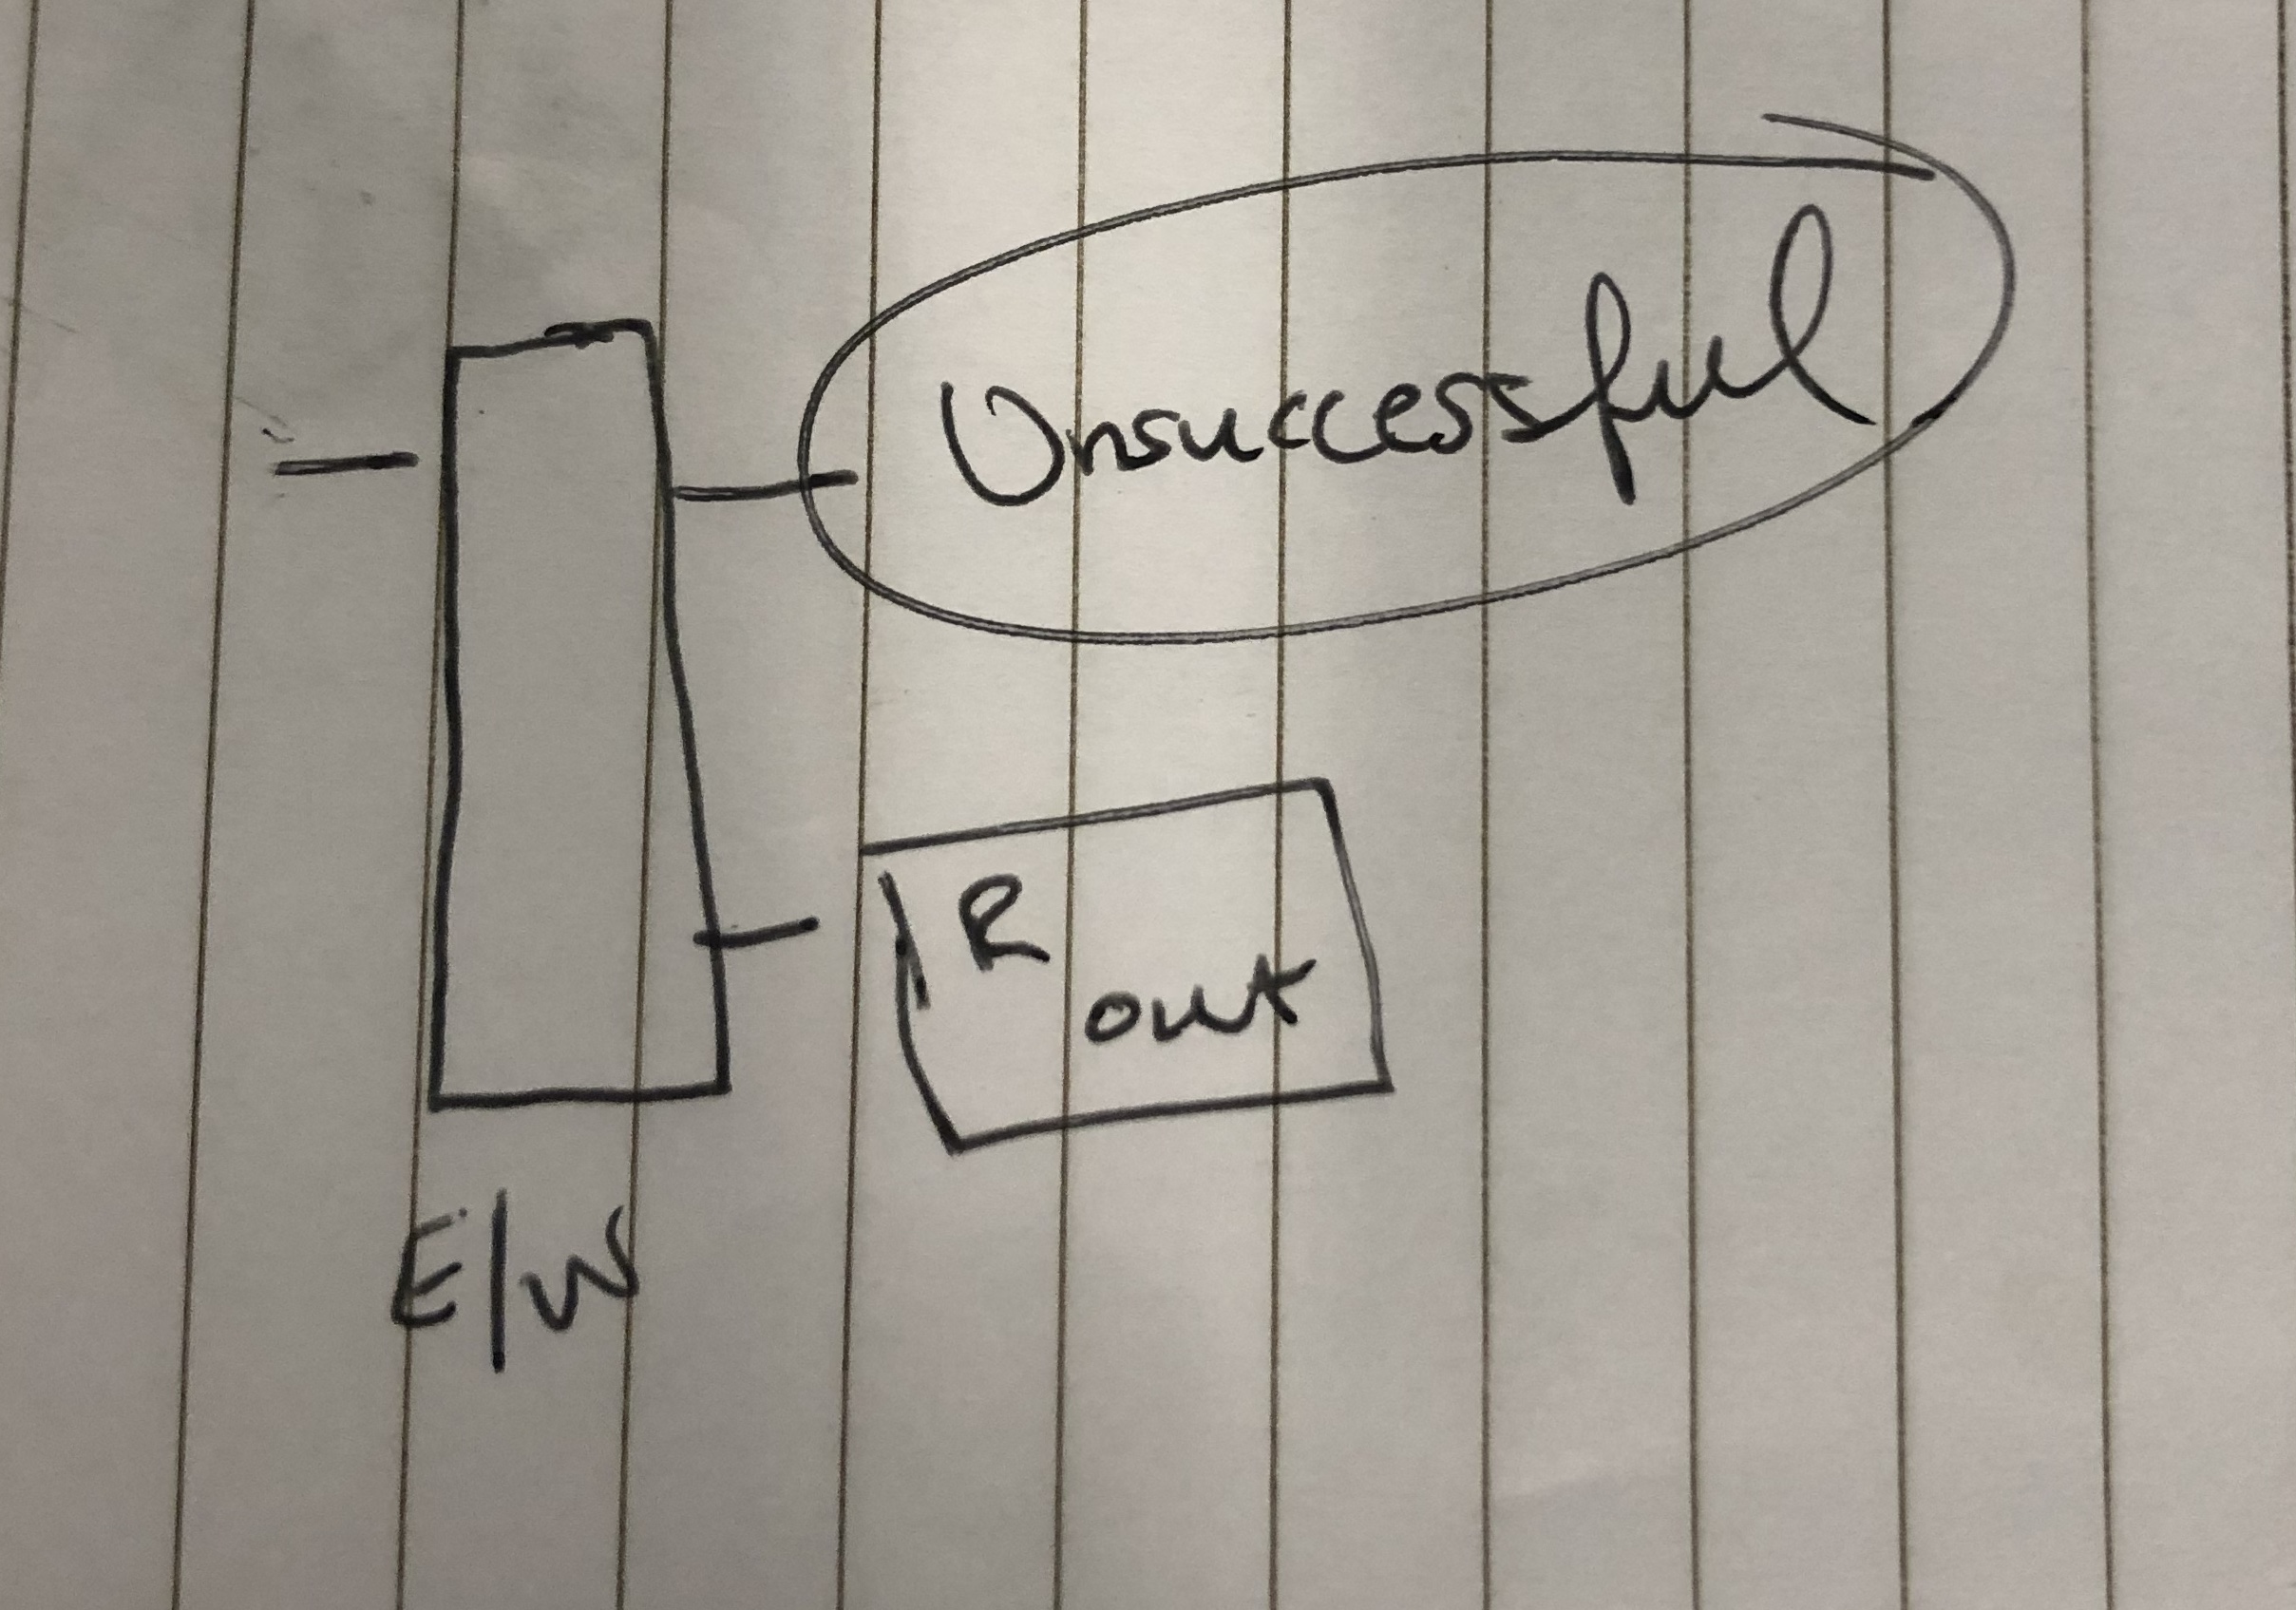 Unsuccessful
R
out
E/W